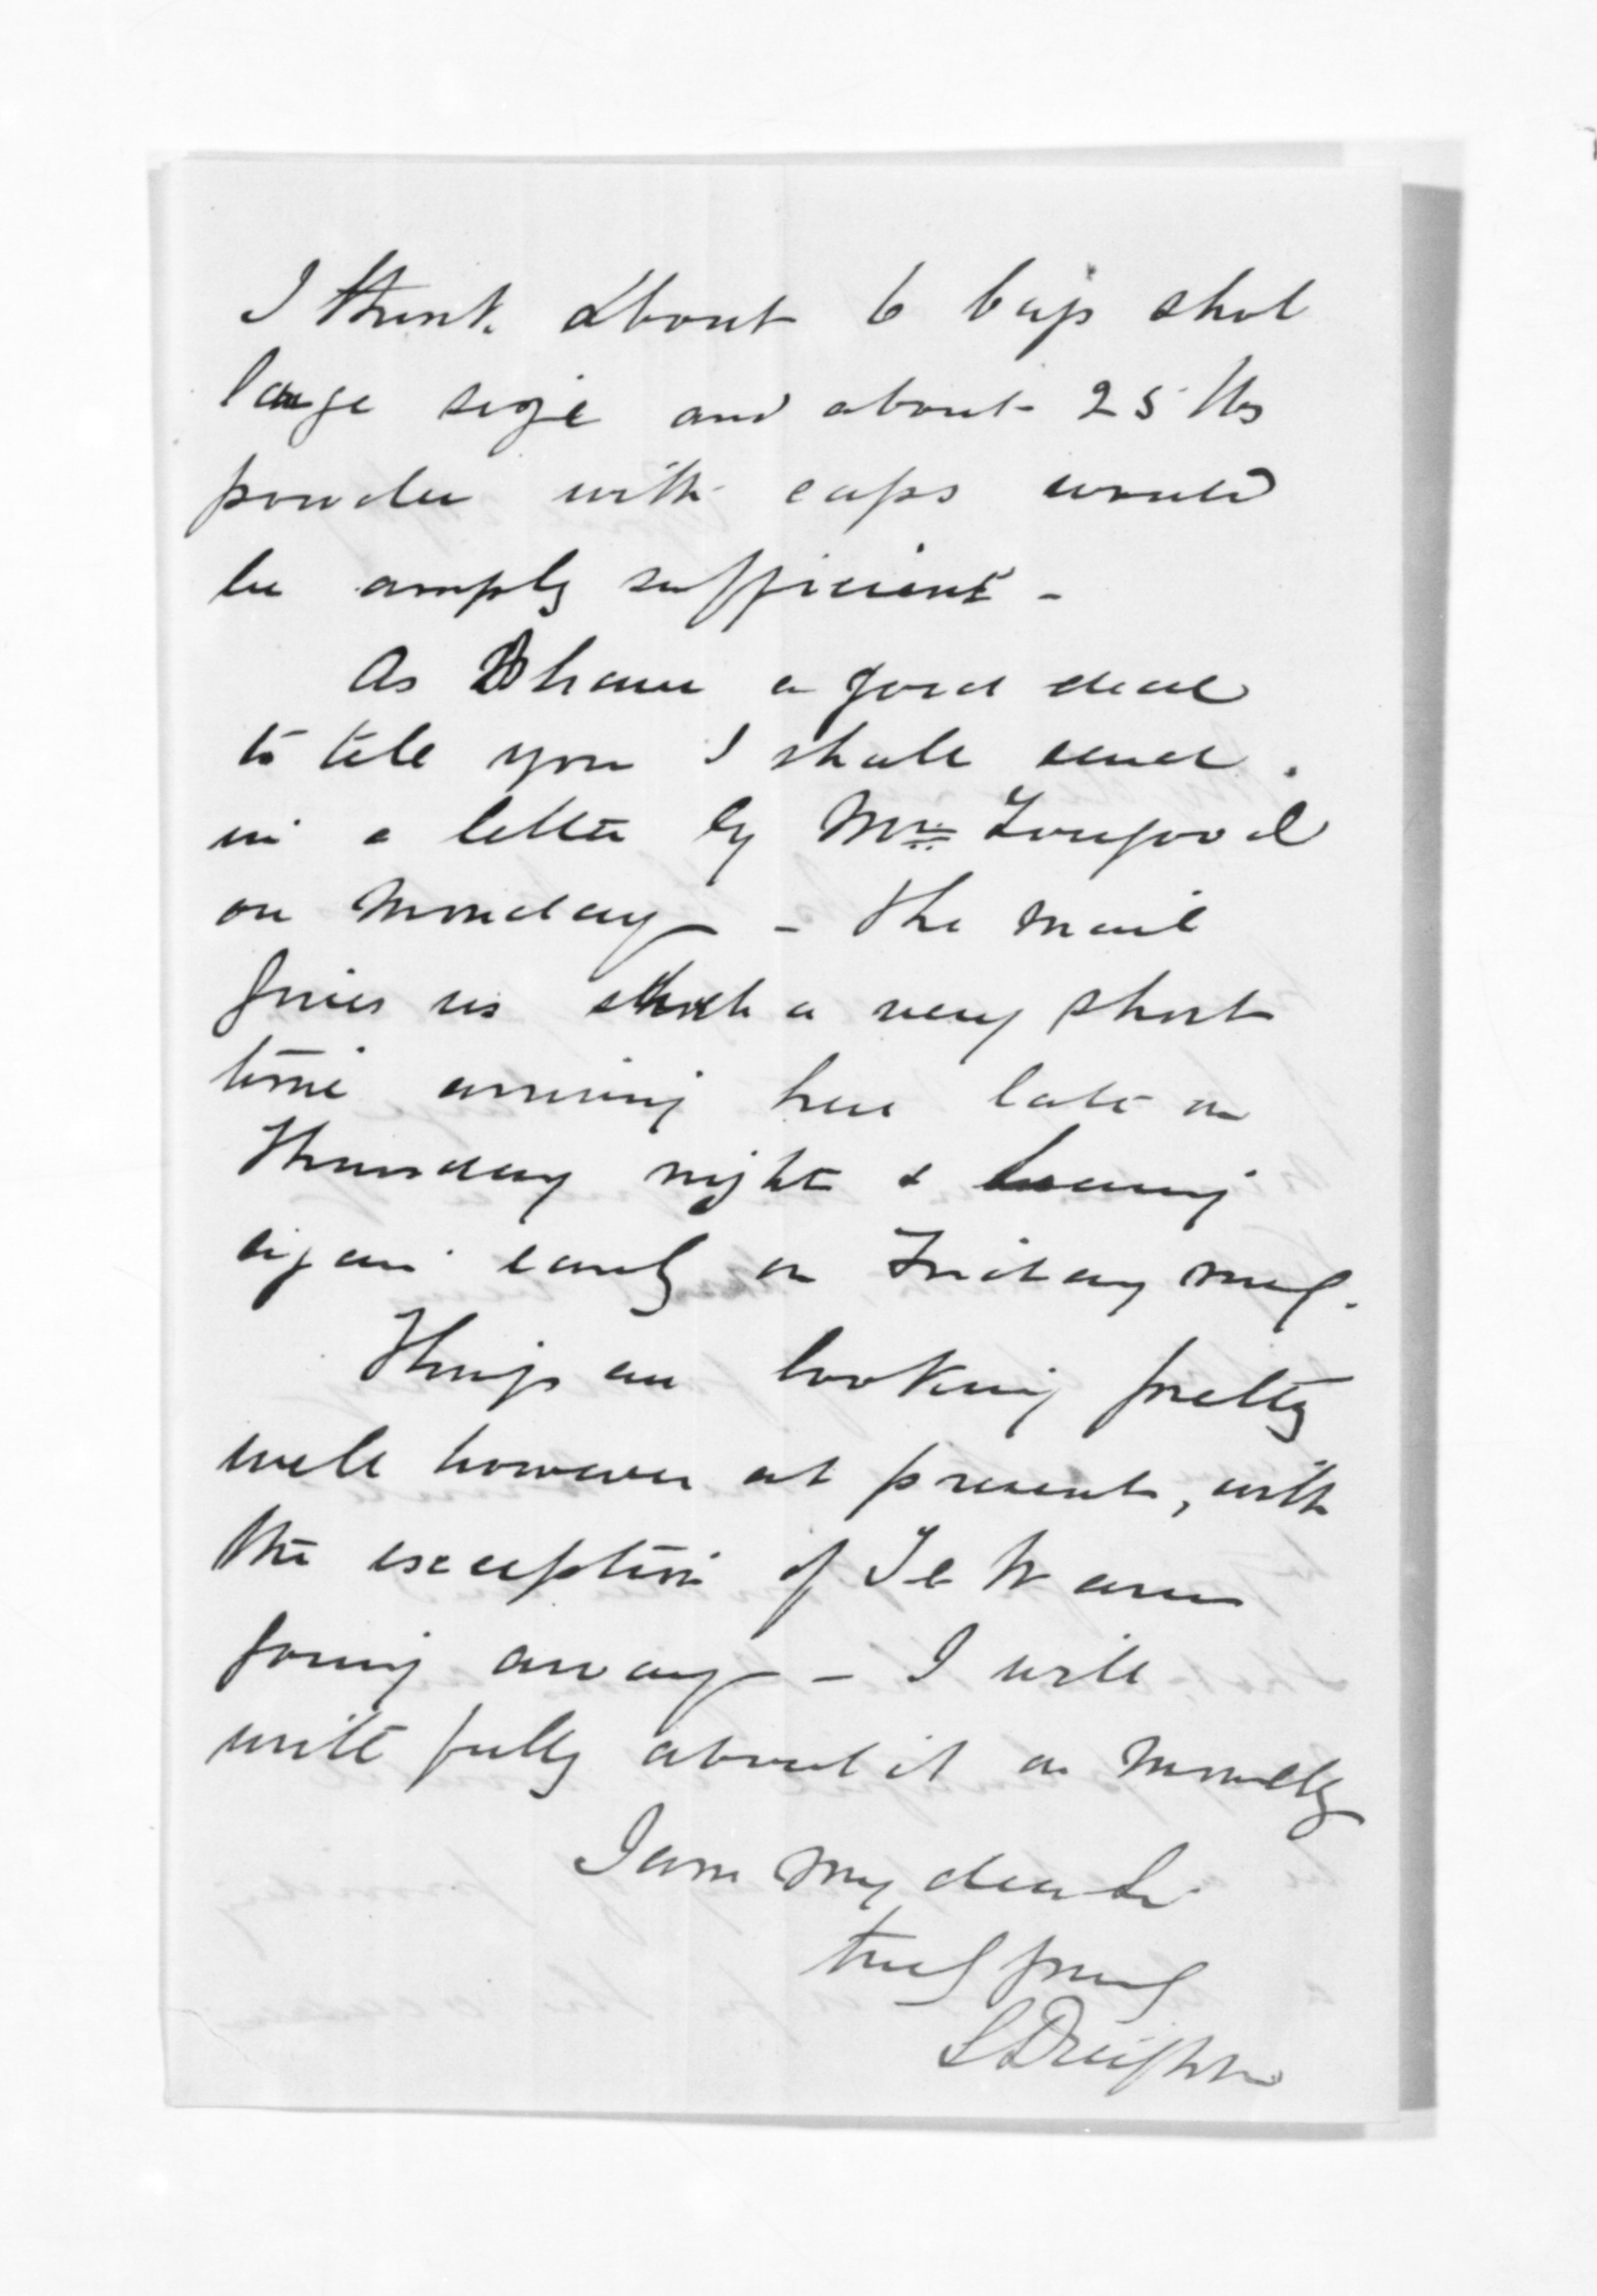 I think about 6 bags shot
large size and about 25 lbs
powder with caps would
be amply sufficient -
As I have a good deal
to tell you I shall send
in a letter by Mr. Towgood
on Monday - The mail
gives us such a very short
time arriving here late on
Thursday night & leaving
again early on Friday mg.
Things are looking pretty
well however at present, with
the exception of Te W
going away - I will
write fully about it on Monday
I am my dear Sir
truly yours
S Deighton